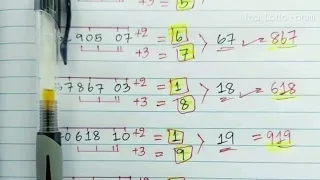 5
905 07 +2 = 6 > 67 = 867
+3 = 7
7867 03 +2 = 1 > 18 = 618
+3 = 8
0618 10 +2 = 1 > 19 = 919
+3 = 9